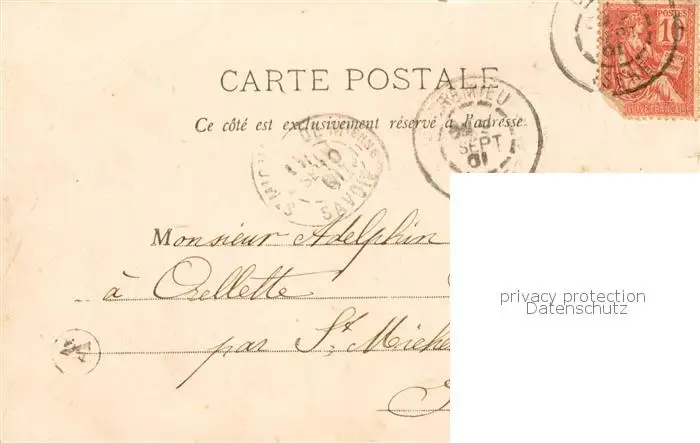 POSTES
10
CARTE POSTALE
CREMIEU
SEPT
01
Ce côté est exclusivement réservé à l'adresse.
SAVOIE
Monsieur Adelphin
à Orellette
par St. Miche
privacy protection
Datenschutz